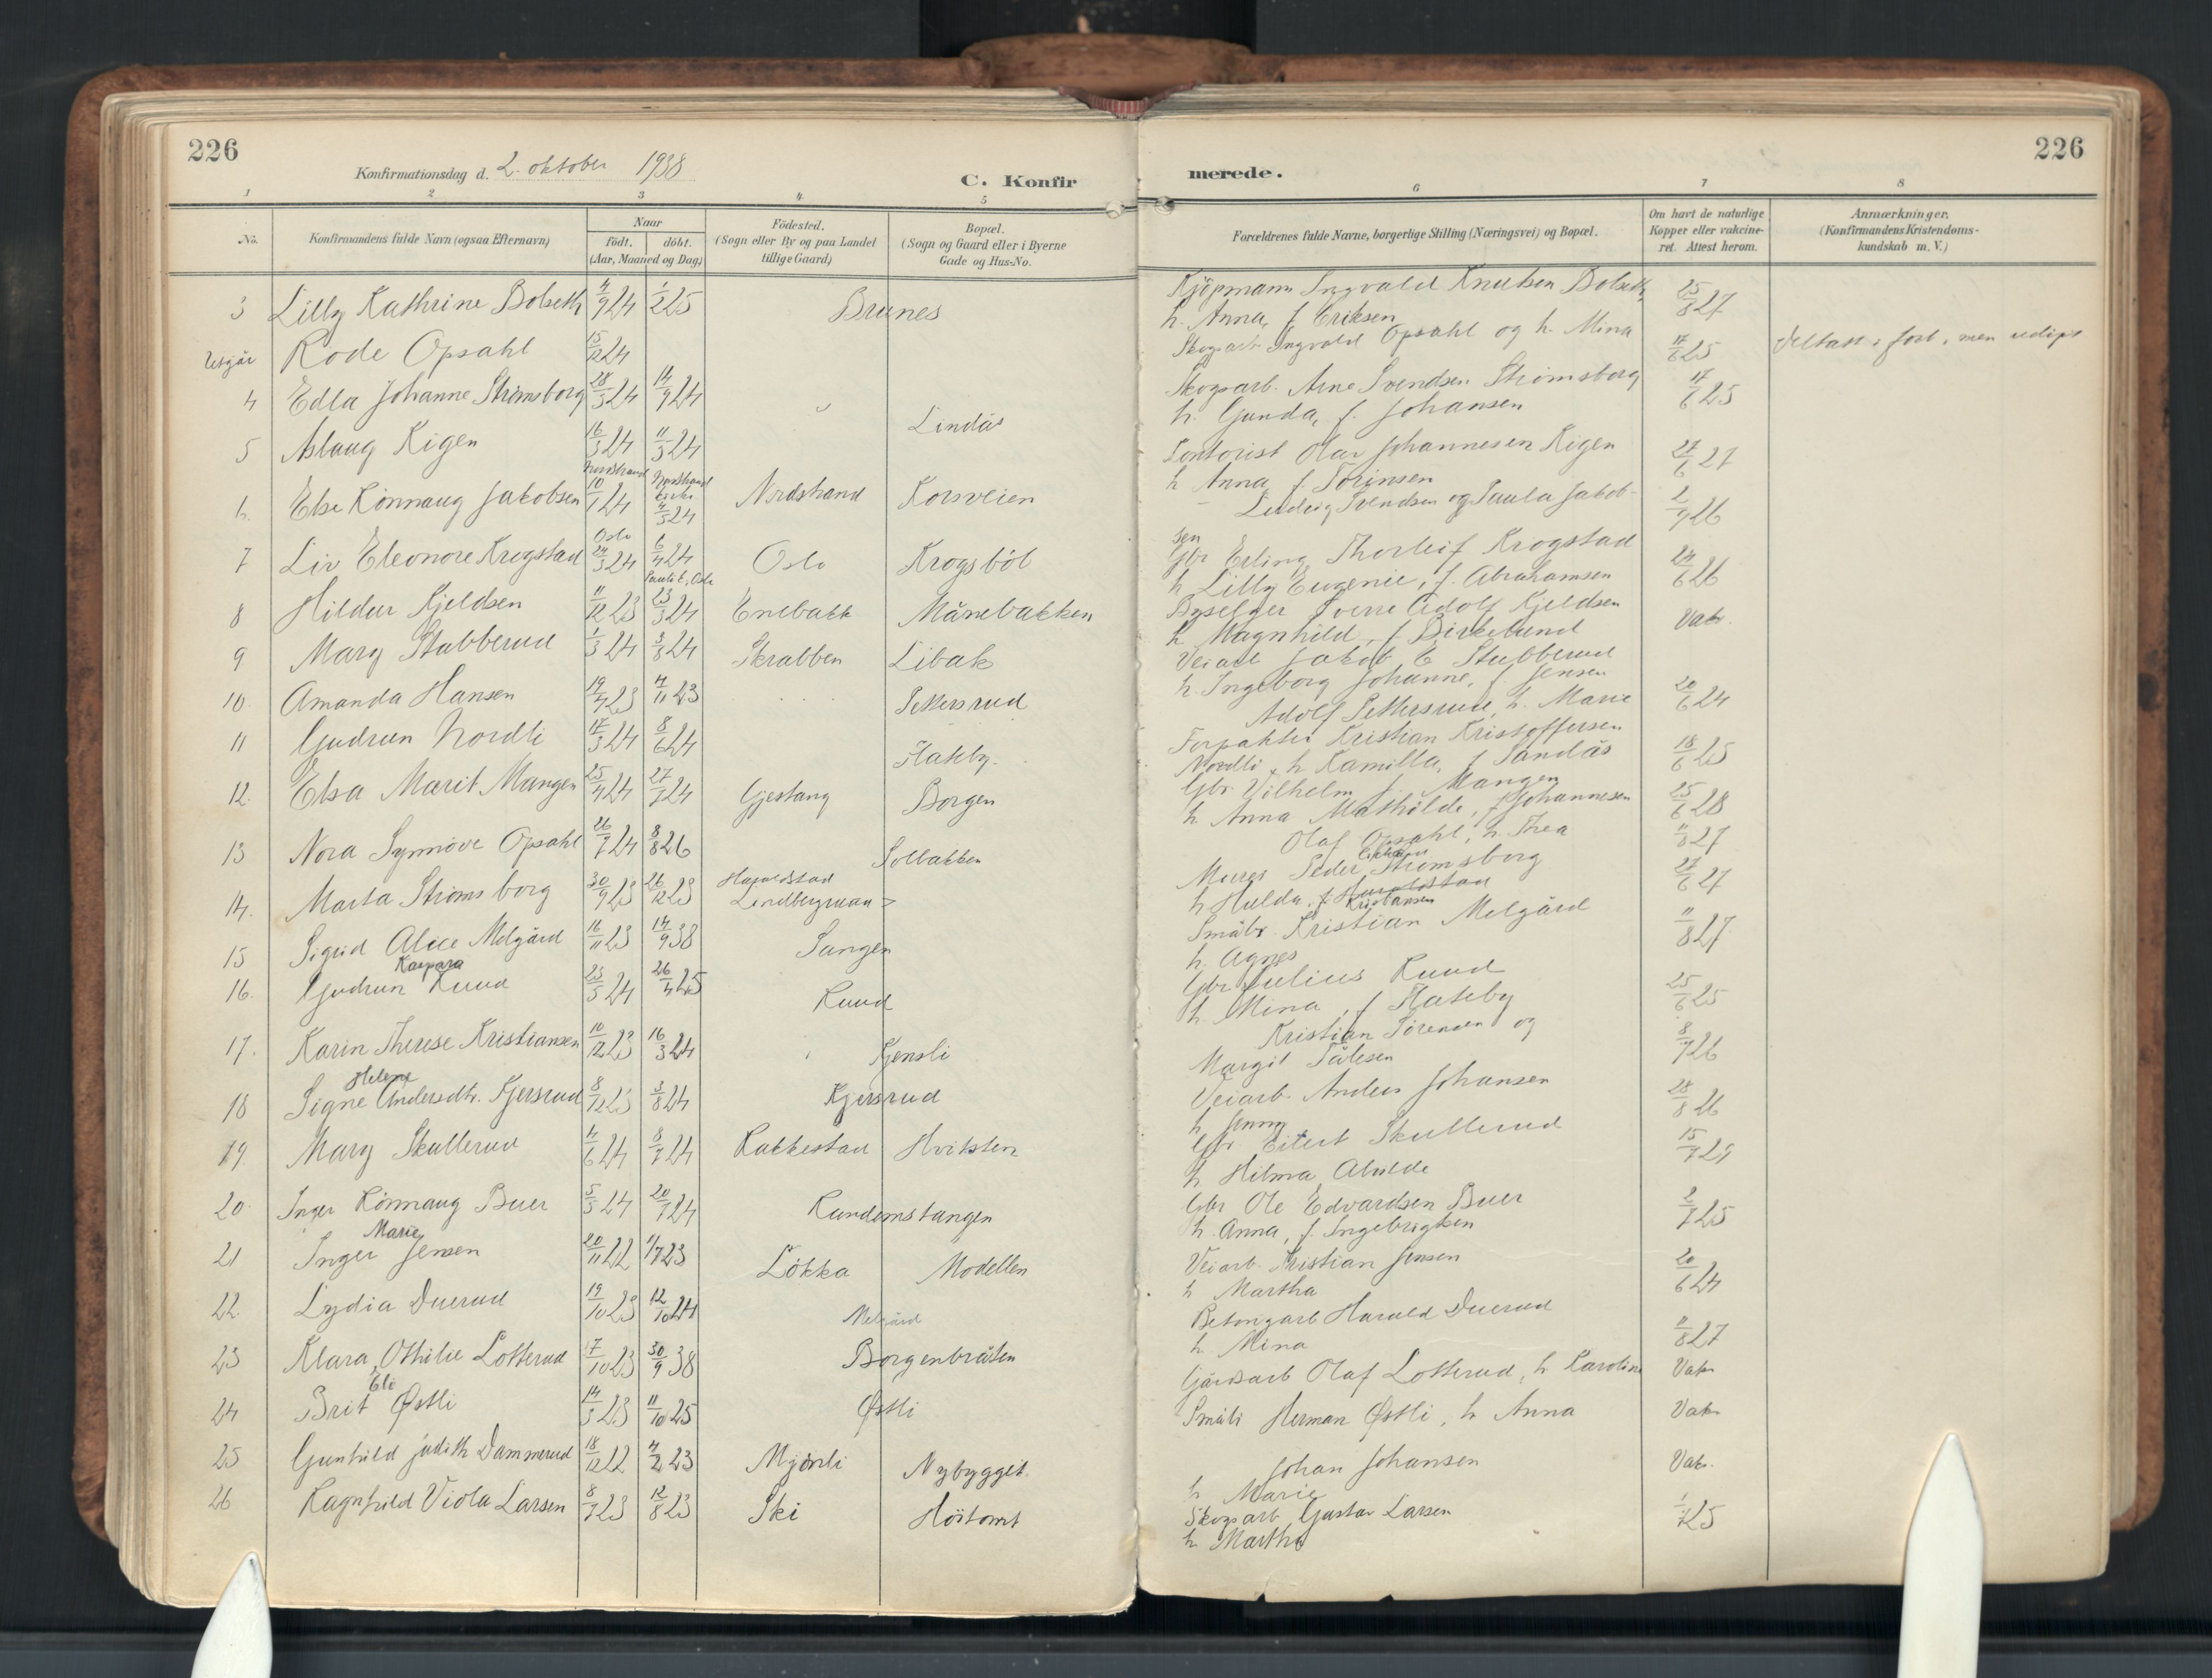 226
Konfirmationsdag d. 2. oktober 1938
C. Konfir
merede.
226
1 2 3 4 5 6 7 8
No.
Konfirmandens fulde Navn (ogsaa Efternavn)
Naar
födt. döbt.
(Aar, Maaned og Dag)
Födested.
(Sogn eller By og paa Landet
tillige Gaard)
Bopæl.
(Sogn og Gaard eller i Byerne
Gade og Hus-No.
Forældrenes fulde Navne, borgerlige Stilling (Næringsvei) og Bopæl.
Om havt de naturlige
Kopper eller vakcine-
ret. Attest herom.
Anmærkninger.
(Konfirmandens Kristendoms-
kundskab m. V.)
3 Lilly Kathrine Bolseth 4/9 24 1/2 25 Brunes
Kjöpmann Ingvald Knutsen Bolseth,
h. Anna, f. Eriksen 25/8 27
Utgår Rode Opsahl 15/12 24
Skogsarb Ingvald Opsahl og h. Mina 17/6 25
4 Edla Johanne Strömsborg 28/3 24 14/9 24
Skogsarb. Arne Svendsen Strömsborg
h. Gunda, f. Johansen 17/6 25
5 Aslaug Rigen 16/3 24 11/5 24 Lindås
Kontorist Olav Johannesen Rigen
h Anna f. Torinsen 27/6 27
6. Else Rönnaug Jakobsen Nordstrand 10/1 24 Nordstrand kirke 4/5 24 Nordstrand Korsveien
Ludvig Svendsen og Paula Jakob-
sen 2/9 26
7 Liv Eleonore Krogstad Oslo 24/3 24 6/4 24 Oslo Krogsböl
Gbr Erling Thorleif Krogstad
h Lilly Eugenie, f. Abrahamsen 24/6 26
8 Hildur Kjeldsen 11/12 23 Paulsk, Oslo 23/3 24 Enebakk Månebakken
Byselger Sverre Adolf Kjeldsen
h Magnhild, f. Birkelund Vak.
9 Mary Stubberud 1/3 24 3/8 24 Skrabben Libak
Veiarb Jakob E Stubberud
h. Ingeborg Johanne, f. Jensen
10. Amanda Hansen 19/4 23 4/11 23 Pettersrud
Adolf Pettersrud, h. Marie 20/6 24
11 Gudrun Nordli 17/3 24 8/6 24 Flateby.
Forpakter Kristian Kristoffersen
Nordli, h Kamilla, f Sandås 18/6 25
12. Elsa Marit Mangen 25/4 24 27/7 24 Gjestang Borgen
Gbr Vilhelm J. Mangen
h Anna Mathilde, f Johannesen 25/6 28
13 Nora Synnöve Opsahl 26/7 24 8/8 26 Solbakken
Olaf Opsahl, h. Thea 11/8 27
14. Marta Stromsborg 30/9 23 26/12 23 Haraldstad
Murer Peder Stromsborg
h Hulda, f Haraldstad Kristiansen 27/6 27
15 Sigrid Alice Melgård 16/11 23 14/9 38 Sangen
Småbr Kristian Melgård
h. Agnes 11/8 27
16. Gudrun Kaspara Ruud 23/5 24 26/4 25 Ruud
Gbr Julius Ruud
h. Mina, f Flateby 25/6 25
17. Karin Therese Kristiansen 10/12 23 16/3 24 Kjensli
Kristian Sörensen og
Margit Pålesen 8/7 26
18 Signe Helene Andersdtr. Kjersrud 8/12 23 3/8 24 Kjersrud
Veiarb Anders Johansen
h Jenny 28/8 26
19. Mary Skullerud 4/6 24 8/7 24 Rakkestad Hviksten
Gbr Eilert Skullerud
h Hilma Alvilde 15/7 29
20. Inger Rönnaug Buer 5/5 24 20/7 24 Randemstangen
Gbr Ole Edvardsen Buer
h. Anna, f. Ingebrigtsen 2/7 25
21 Inger Marie Jensen 20/11 22 1/7 23 Lökka Modellen
Veiarb. Kristian Jensen
h Martha 20/6 24
22. Lydia Duerud 19/10 23 12/10 24 Melgård
Betongarb Harald Duerud
h Mina 11/8 27
23 Klara, Othilie Lotterud 17/10 23 30/9 38 Borgenbråten
Gårdsarb Olaf Lotterud, h Karoline Vak
24 Brit Eli Østli 14/3 23 11/10 25 Østli
Småbr Herman Østli, h Anna Vak
25 Gunhild Judith Dammerud 18/12 22 4/2 23 Mjörli Nybygget.
Johan Johansen
h Marie Vak.
26 Ragnhild Viola Larsen 8/7 23 12/8 23 Ski Höitomt
Skogsarb Gustav Larsen
h Martha 1/7 25